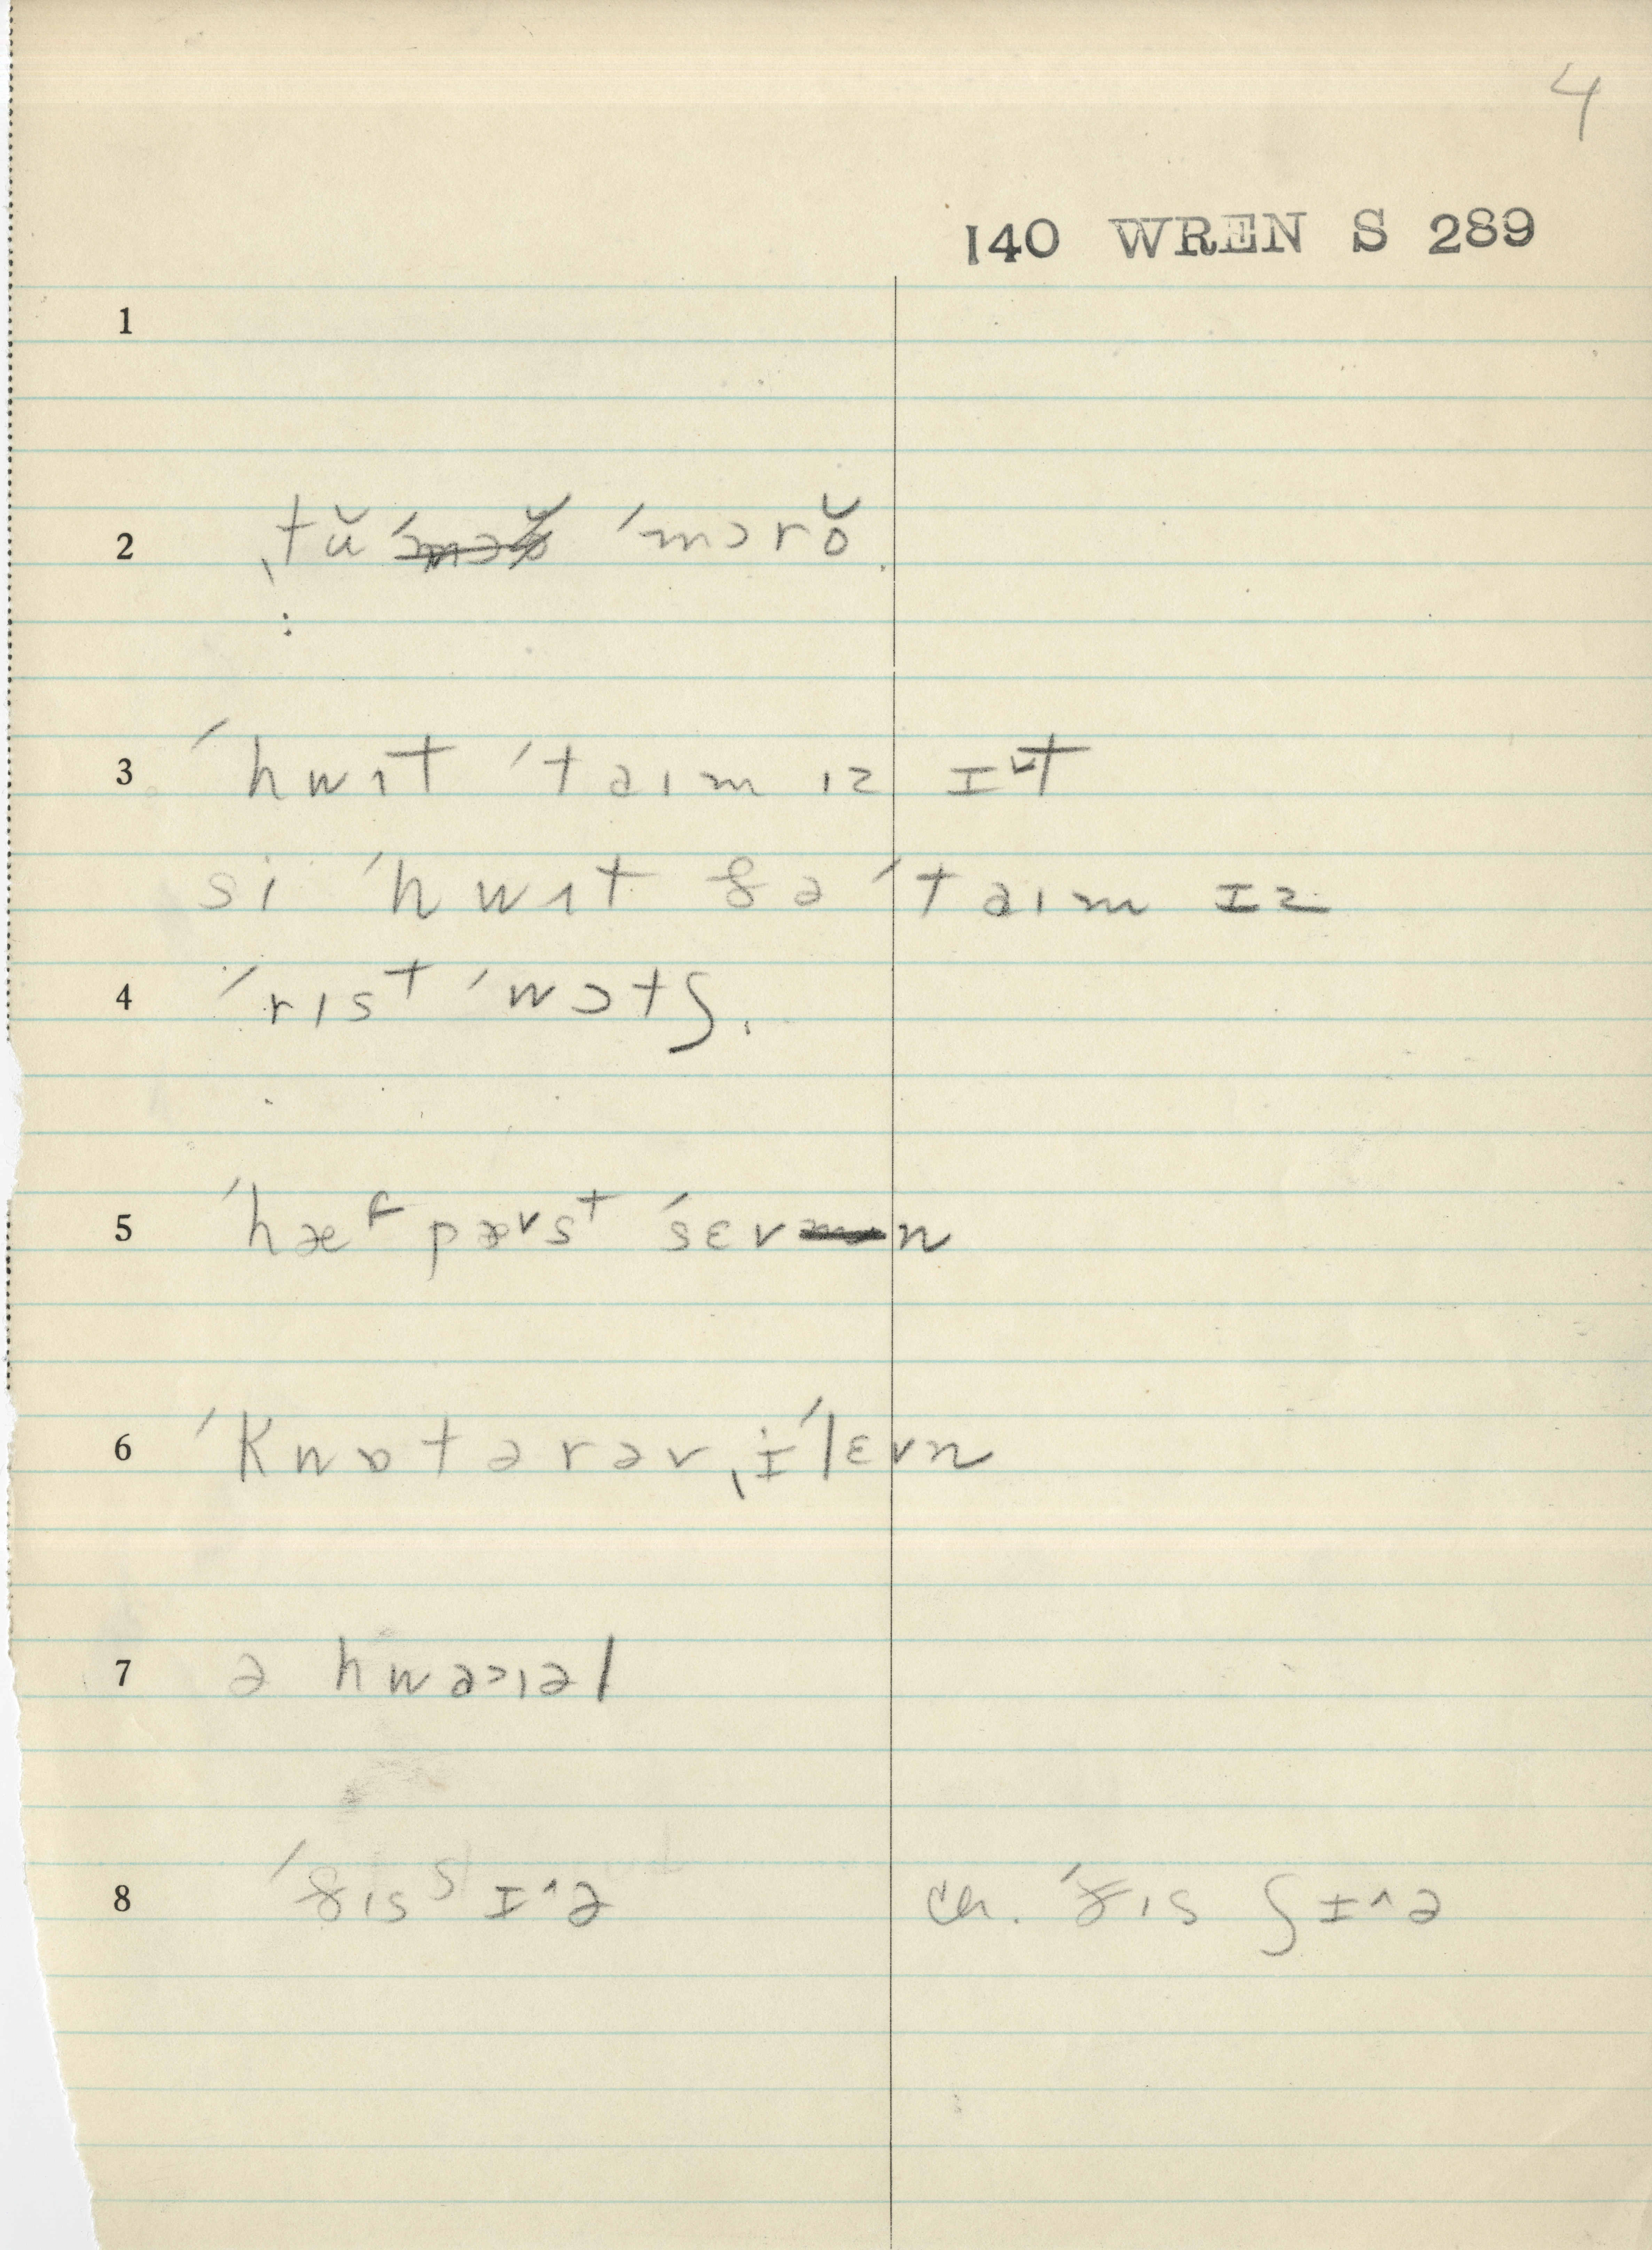 4
140 WREN S 289
1
2 ˌtŭ ˈmɔrŏ
3 ˈhwɪt ˈtaɪm ɪz ɪ˅t
si ˈhwɪt ðə ˈtaɪm ɪz
4 ˈrɪsᵗ ˈwɔtʃ.
5 ˈhæᶠ pæ˅sᵗ ˈsɛvn
6 ˈkwɒtərəv ˌɪˈlɛvn
7 ə hwaɔɪəl
8 ˈðɪsˢ ɪ^ə ch. ˈðɪs ʃɪ^ə